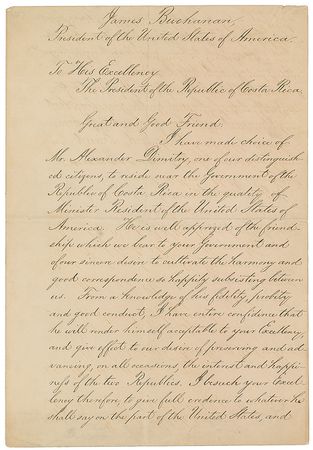 James Buchanan,
President of the United States of America.
To His Excellency
The President of the Republic of Costa Rica.
Great and Good Friend
I have made choice of
Mr. Alexander Dimitry, one of our distinguish
ed citizens, to reside near the Government of the
Republic of Costa Rica in the quality of
Minister Resident of the United States of
America. He is well apprized of the friend-
ship which we bear to your Government and
of our sincere desire to cultivate the harmony and
good correspondence so happily subsisting between
us. From a knowledge of his fidelity, probity
and good conduct, I have entire confidence that
he will render himself acceptable to your Excellency,
and give effect to our desire of preserving and ad
vancing, on all occasions, the interest and happi-
ness of the two Republics. I beseech your Excel
lency therefore, to give full credence to whatever he
shall say on the part of the United States, and